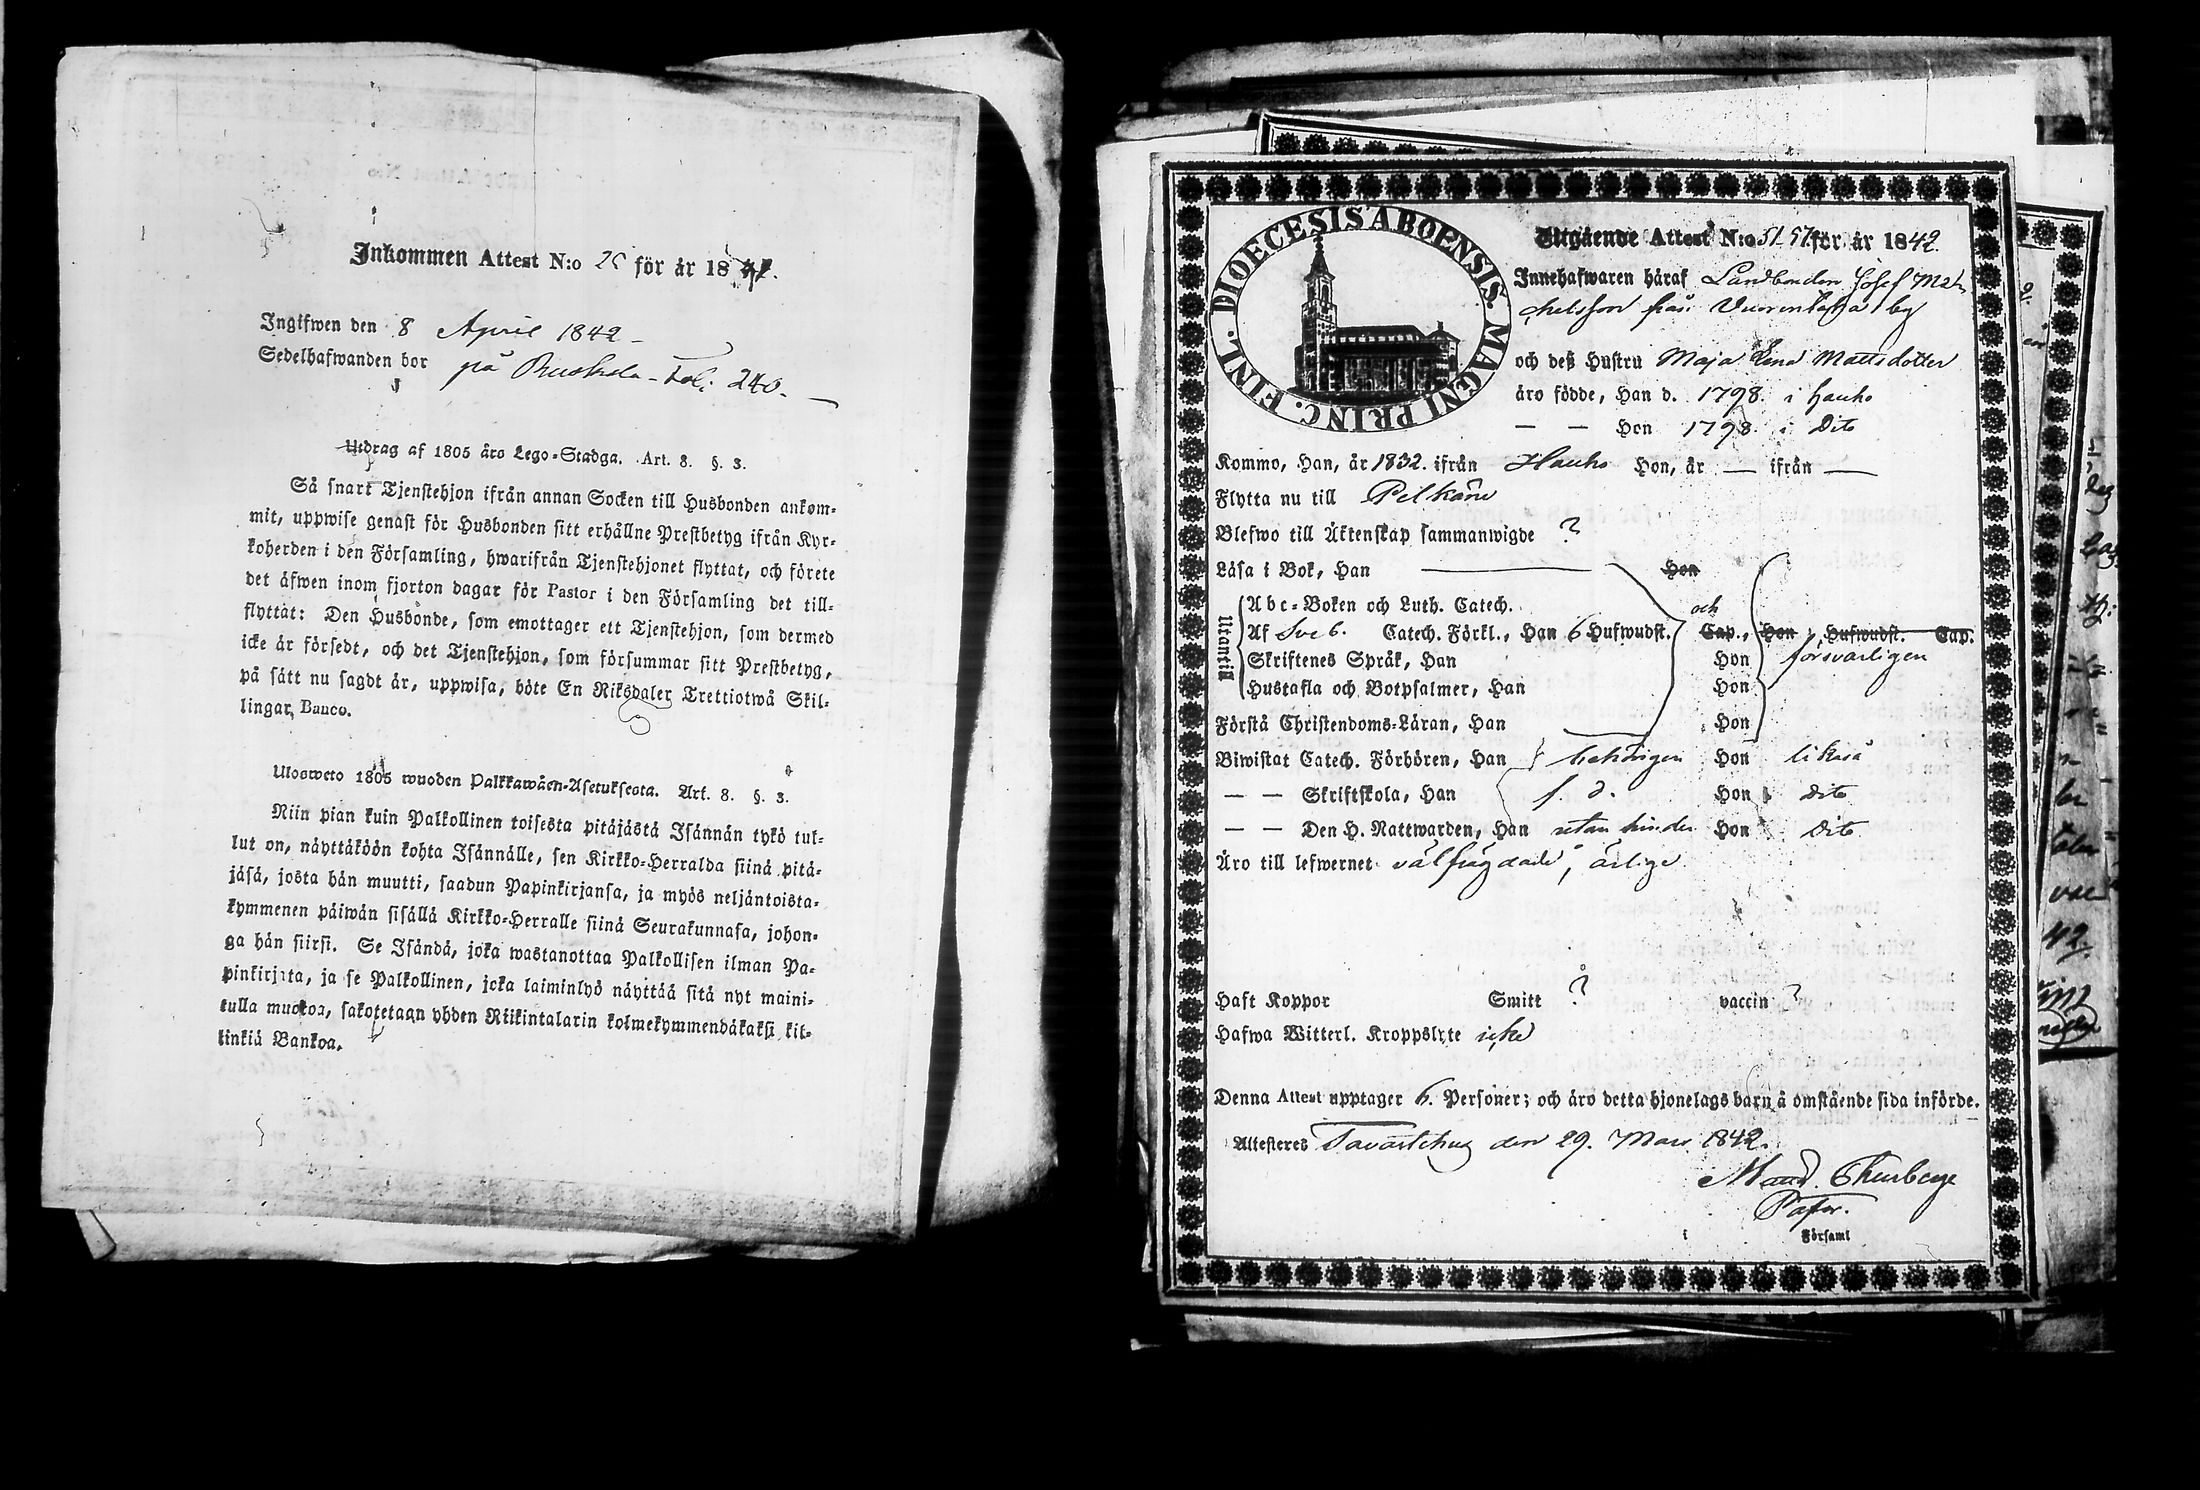 Inkommen Attest N:o 25 för år 1842.
Ingifwen den 8 April 1842 -
Sedelhafwanden bor på Ruskela - Fol: 240. -
Utdrag af 1805 års Lego-Stadga. Art. 8. §. 3.
Så snart Tjenstehjon ifrån annan Socken till Husbonden ankom-
mit, uppwise genast för Husbonden sitt erhållne Prestbetyg ifrån Kyr-
koherden i den Församling, hwarifrån Tjenstehjonet flyttat, och förete
det äfwen inom fjorton dagar för Pastor i den Församling det till-
flyttat: Den Husbonde, som emottager ett Tjenstehjon, som dermed
icke är försedt, och det Tjenstehjon, som försummar sitt Prestbetyg,
på sätt nu sagdt är, uppwisa, böte En Riksdaler Trettiotwå Skil-
lingar Banco.
Ulosweto 1805 wuoden Palkkawäen-Asetuksesta. Art. 8. §. 3.
Niin pian kuin Palkollinen toisesta pitäjästä Isännän tykö tul-
lut on, näyttäköön kohta Isännälle, sen Kirkko-Herralda siinä pitä-
jäsä, josta hän muutti, saadun Papinkirjansa, ja myös neljäntoista-
kymmenen päiwän sisällä Kirkko-Herralle siinä Seurakunnasa, johon-
ga hän siirsi. Se Isändä, joka wastanottaa Palkollisen ilman Pa-
pinkirjata, ja se Palkollinen, joka laiminlyö näyttää sitä nyt maini-
tulla muotoa, sakotetaan yhden Riikintalarin kolmekymmendäkaksi kil-
linkiä Bankoa.
FINL. DIOECESIS ABOENSIS. MAGNI PRINC.
Utgående Attest N:o 51-57 för år 1842.
Innehafwaren häraf Landbonden Josef Mat-
from Vuorentaka by
och deß Hustru Maja Lena Mattsdotter
äro födde, Han d. 1798. i Hauho
— — Hon 1798. i Dito
Kommo, Han, år 1832. ifrån Hauho Hon, år — ifrån —
Flytta nu till Pelkäne
Blefwo till Äktenskap sammanwigde ?
Läsa i Bok, Han Hon
Utantill
Abc-Boken och Luth. Catech. och
Af Sveb. Catech. Förkl., Han 6 Hufwudst. Cap., Hon Hufwudst. Cap.
Skriftenes Språk, Han Hon försvarligen
Hustafla och Botpsalmer, Han Hon
Förstå Christendoms-Läran, Han Hon
Biwistat Catech. Förhören, Han behörigen Hon likaså
— — Skriftskola, Han f. d. Hon Dito
— — Den H. Nattwarden, Han utan hinder Hon Dito
Äro till lefwernet välfrägdade, ärlige
Haft Koppor Smitt ? vaccin ?
Hafwa Witterl. Kroppslyte icke
Denna Attest upptager 6. Personer; och äro detta hjonelags barn å omstående sida införde.
Attesteres Tavastehus den 29. Mars 1842.
Thunberg
Pastor.
i Församl